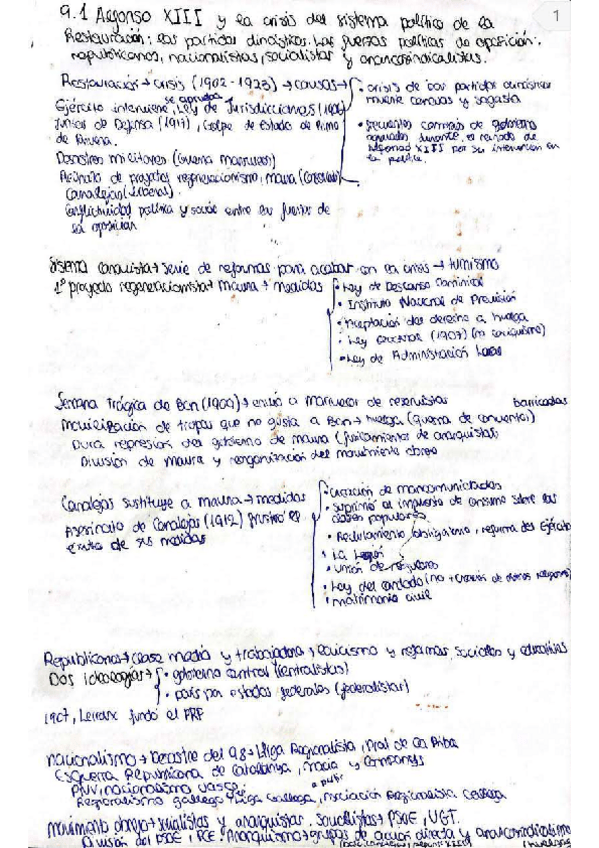 9.1 Alfonso XIII y la crisis del sistema político de la
Restauración: los partidos dinásticos. Las fuerzas políticas de oposición:
republicanos, nacionalistas, socialistas y anarcosindicalistas.
1
Restauración → crisis (1902-1923) → causas →
• crisis de los partidos dinásticos
muerte cánovas y sagasta
Ejército interviene, se aprueba Ley de Jurisdicciones (1906)
Juntas de Defensa (1917), Golpe de Estado de Primo
de Rivera.
• frecuentes cambios de gobierno
durante el reinado de
Alfonso XIII por su intervención en
la política.
Desastres militares (Guerra Marruecos)
proyectos regeneracionismo, maura (conservador)
Canalejas (liberales).
Conflictividad política y social entre las fuerzas de
la oposición
Sistema canovista → serie de reformas para acabar con la crisis → turnismo
1º proyecto regeneracionista → maura → medidas
• Ley de Descanso Dominical
• Instituto Nacional de Previsión
• Aceptación del derecho a huelga
• Ley electoral (1907) (no caciquismo)
• Ley de Administración Local
Semana Trágica de Bcn (1909) → envío a marruecos de reservistas
barricadas
movilización de tropas que no gusta a Bcn → huelga (quema de conventos)
Dura represión del gobierno de maura (fusilamiento de anarquistas)
División de maura y reorganización del movimiento obrero
Canalejas sustituye a maura → medidas
Asesinato de Canalejas (1912) frustró el
éxito de sus medidas
• creación de mancomunidades
• suprimió el impuesto de consumo sobre las
clases populares
• Reclutamiento obligatorio, reforma del Ejército
• La
• unión de
• Ley del candado (no + órdenes religiosas)
• matrimonio civil
Republicanos → clase media y trabajadora, laicismo y reformas sociales y educativas
Dos ideologías →
• gobierno central (centralistas)
• país por estados federales (federalistas)
1907, Lerroux fundó el PRP
nacionalismo → Desastre del 98 → Lliga Regionalista, Prat de la Riba
Esquerra Republicana de Catalunya, macià y Companys
PNV, nacionalismo vasco
Regionalismo gallego → Liga Gallega, Asociación Regionalista Gallega
movimiento obrero → socialistas y anarquistas. Socialistas → PSOE, UGT.
División del PSOE, PCE. Anarquismo → grupos de acción directa y anarcosindicalismo